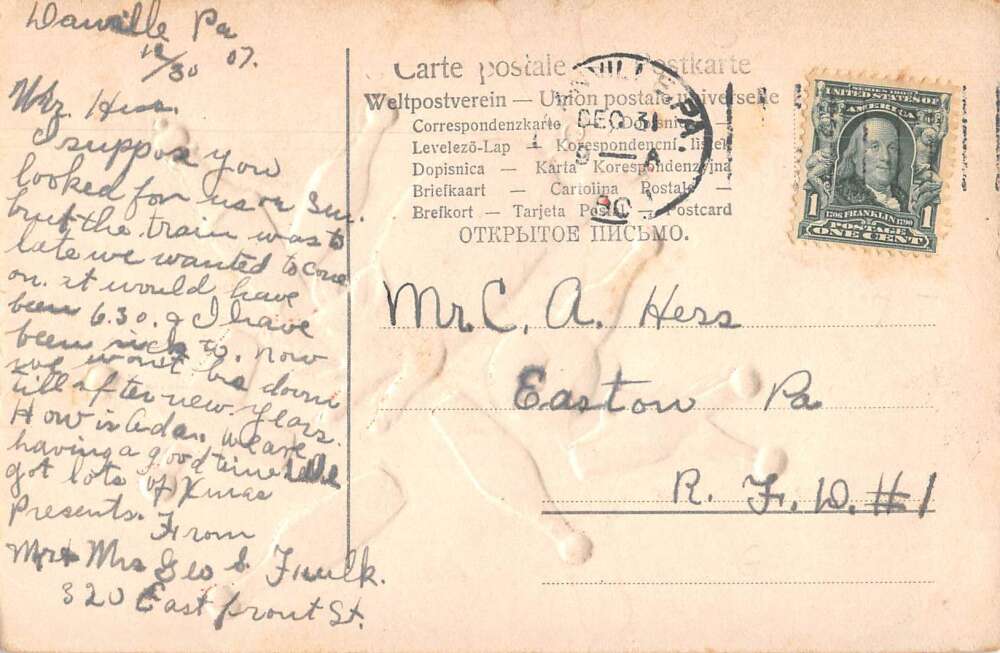 Danville Pa
12/30 07.
Mr. Hess.
I suppos you
looked for us on Sun.
but the train was to
late we wanted to come
on. it would have
been 6.30. & I have
been sick to. now
we won't be down
till after new years.
How is Ada. we are
having a good time
got lots of Xmas
Presents. From
Mr & Mrs Geo S. Faulk.
320 East front St.
Carte postale — Postkarte
Weltpostverein — Union postale universelle
Correspondenzkarte — Dopisnice —
Levelező-Lap — Korespondencni listek
Dopisnica — Karta Korespondenzyjna
Briefkaart — Cartolina Postale —
Brefkort — Tarjeta Postal — Postcard
ОТКРЫТОЕ ПИСЬМО.
DEC 31
PA.
UNITED STATES OF
AMERICA
1706 FRANKLIN 1790
1 1
POSTAGE
ONE CENT
Mr. C. A. Hess
Easton Pa
R. F. D. #1